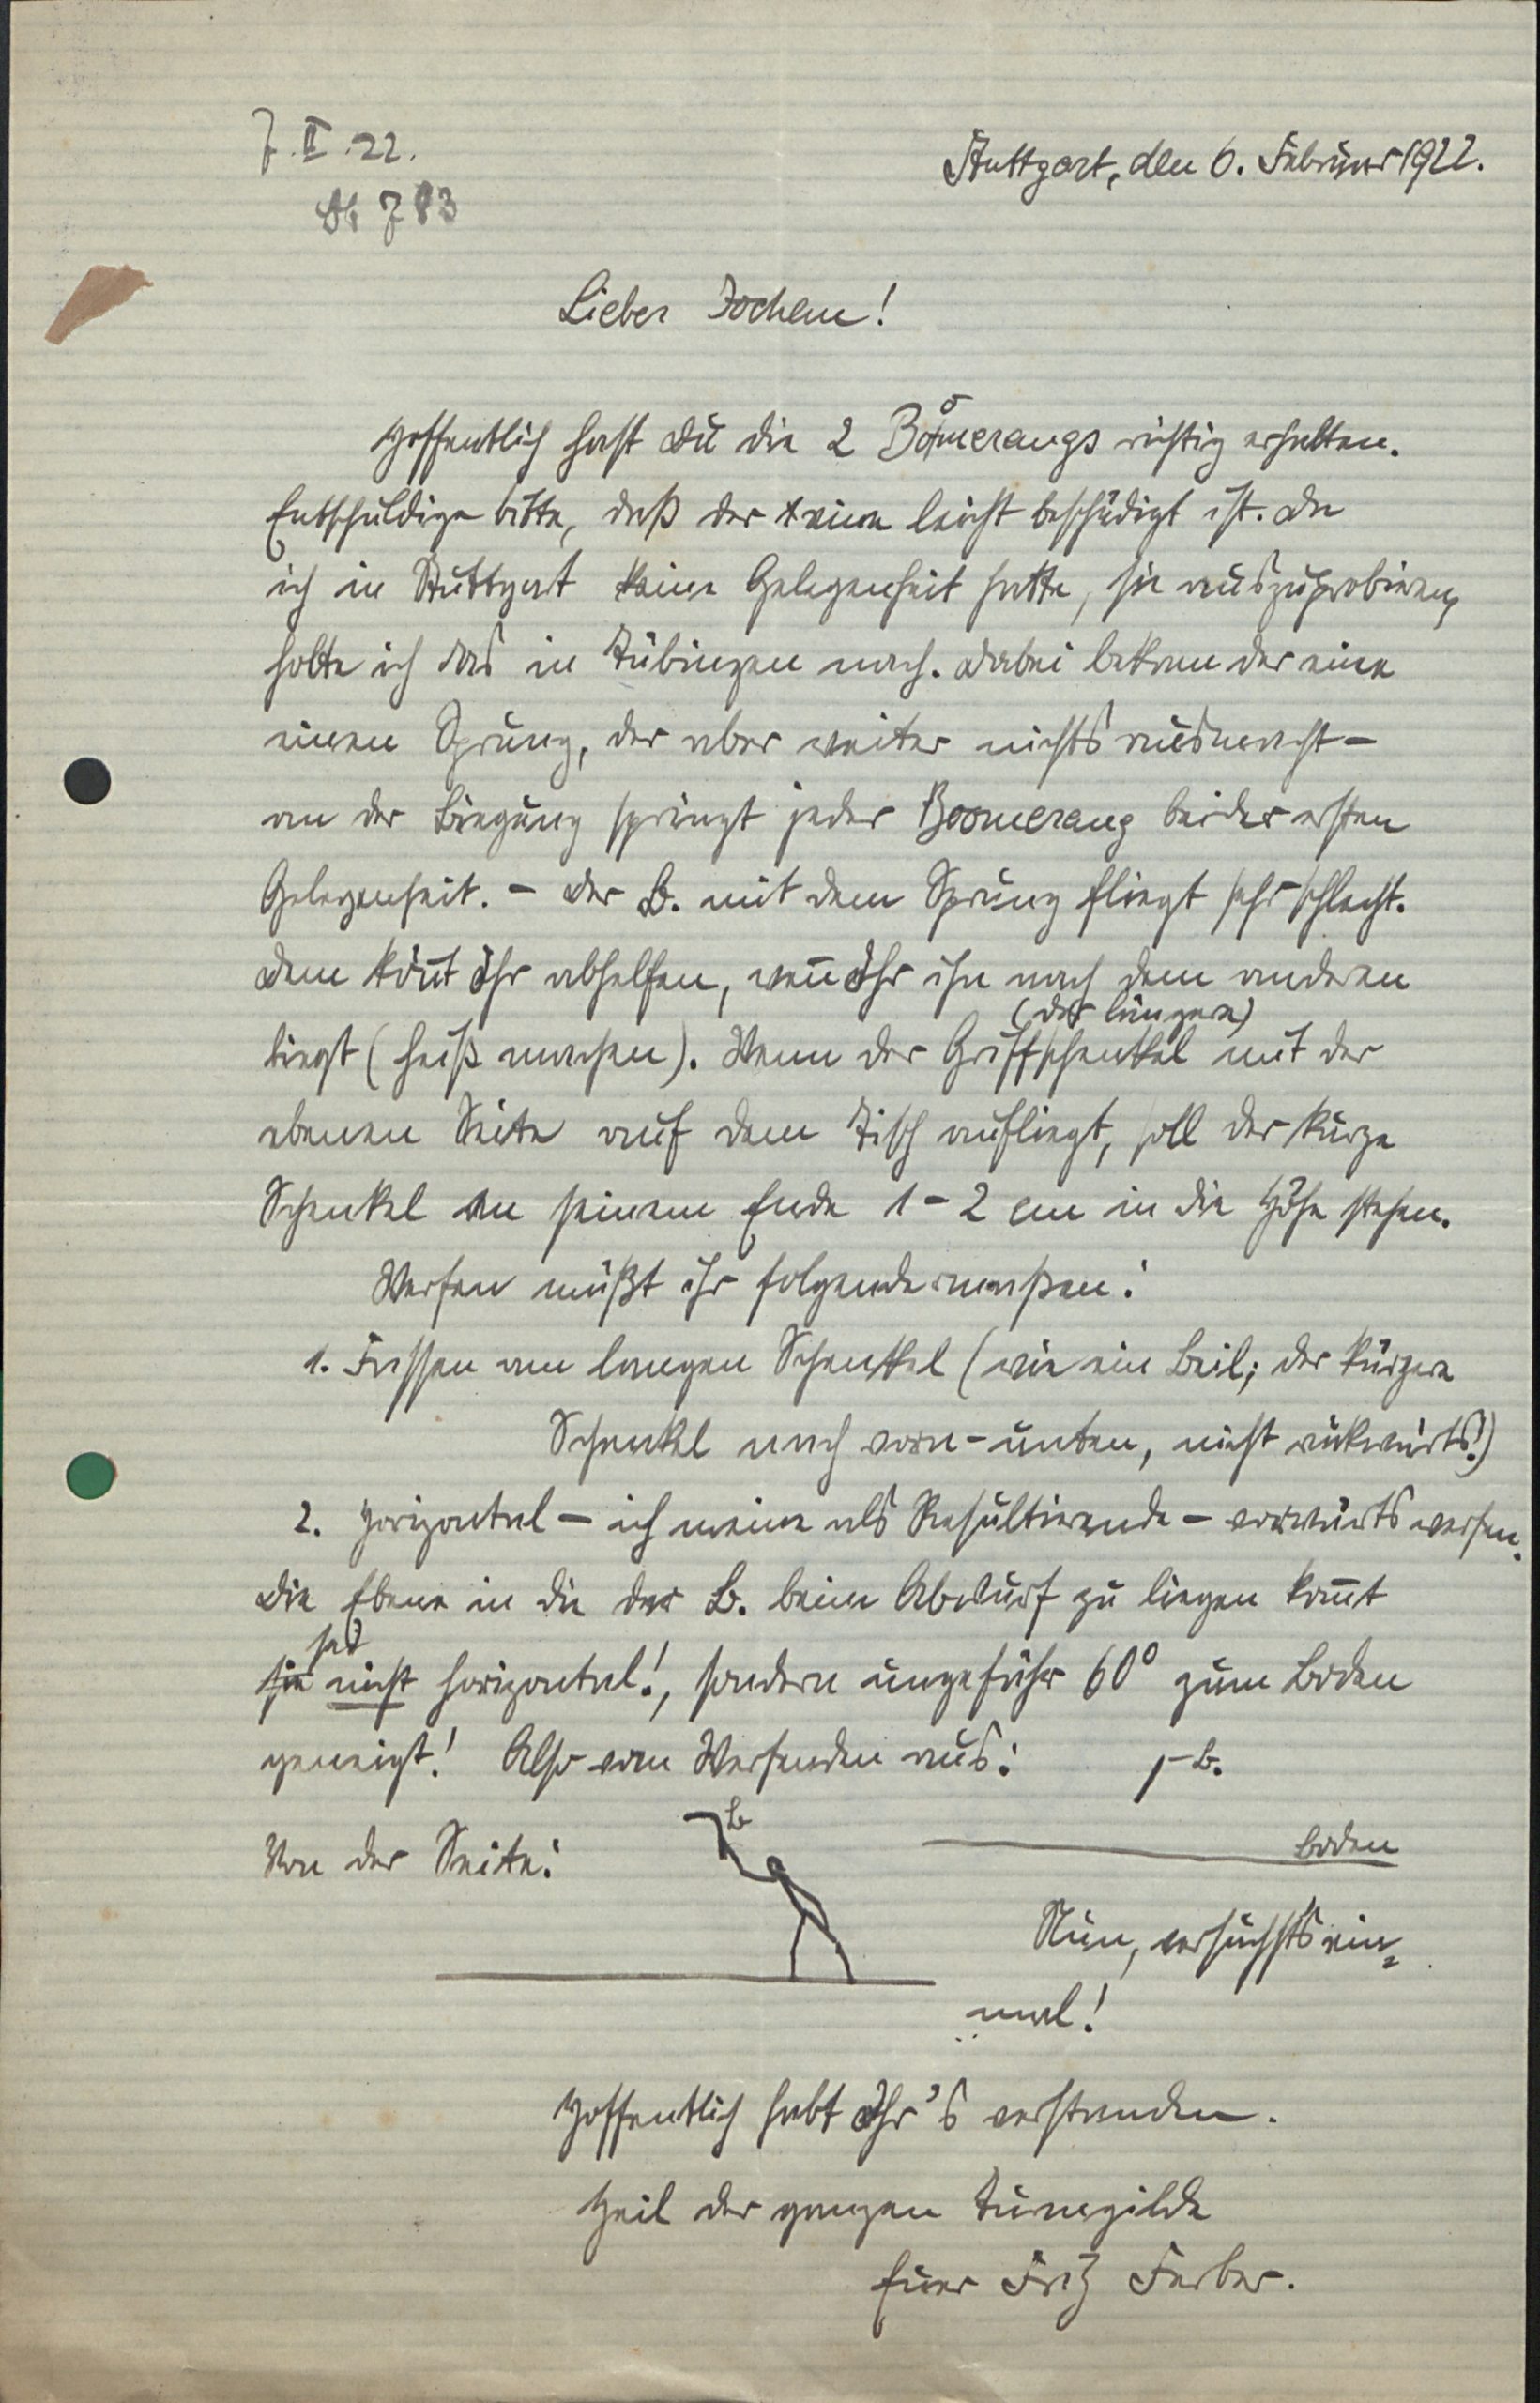 7. II. 22.
783
Stuttgart, den 6. Februar 1922.
Lieber Jochem!
Hoffentlich hast Du die 2 Boomerangs richtig erhalten.
Entschuldige bitte, daß der eine leicht beschädigt ist. Da
ich in Stuttgart keine Gelegenheit hatte, sie auszuprobieren,
holte ich das in Tübingen nach. Dabei bekam der eine
einen Sprung, der aber weiter nichts ausmacht –
an der Biegung springt jeder Boomerang bei der ersten
Gelegenheit. – Der B. mit dem Sprung fliegt sehr schlecht.
Dem kön̅t Ihr abhelfen, wen̅ Ihr ihn nach dem anderen
(der längere)
biegt (heiß machen). Wenn der Griffschenkel mit der
ebenen Seite auf dem Tisch aufliegt, soll der kurze
Schenkel an seinem Ende 1-2 cm in die Höhe stehen.
Werfen müßt ihr folgendermaßen:
1. Fassen am langen Schenkel (wie ein Beil; der kürzere
Schenkel nach vorn-unten, nicht rückwärts!)
2. Horizontal – ich meine als Resultierende – vorwärts werfen.
Die Ebene in die der B. beim Abwurf zu liegen kom̅t
ist
sie nicht horizontal!, sondern ungefähr 60° zum Boden
geneigt! Also vom Werfenden aus:
B.
B
Von der Seite:
Boden
Nun, versuchts ein-
mal!
Hoffentlich habt Ihr's verstanden.
Heil der ganzen Turngilde
Euer Fritz Ferber.